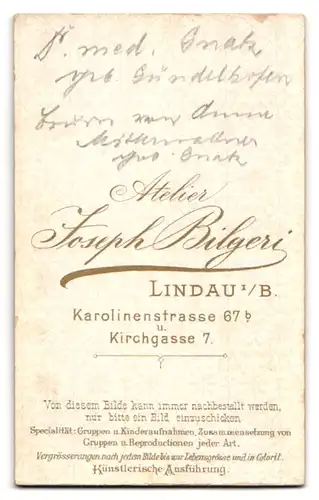 Dr. med. Gnatz
geb. Gündelhofen
von Anna
geb. Gnatz
Atelier
Joseph Bilgeri
LINDAU I/B.
Karolinenstrasse 67 b
u.
Kirchgasse 7.
Von diesem Bilde kann immer nachbestellt werden,
nur bitte ein Bild einzuschicken.
Specialität: Gruppen u. Kinderaufnahmen, Zusammensetzung von
Gruppen u. Reproductionen jeder Art.
Vergrösserungen nach jedem Bilde bis zur Lebensgrösse und in Colorit.
Künstlerische Ausführung.